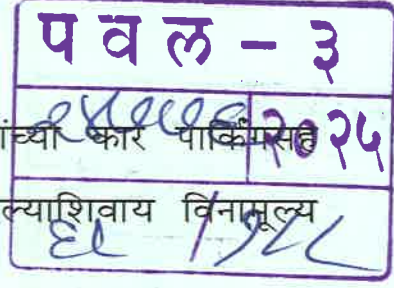 प व ल – ३
२०२५
ांच्या कार पार्किंगसह
ल्याशिवाय विनामूल्य
६८ / १८८